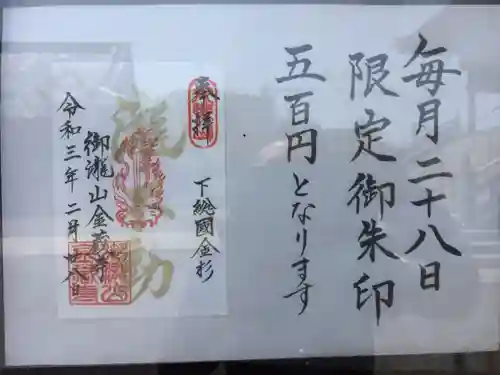 毎月二十八日
限定御朱印
五百円となります
奉拝
下総國金杉
滝不動
御瀧山金蔵寺
令和三年二月廿八日